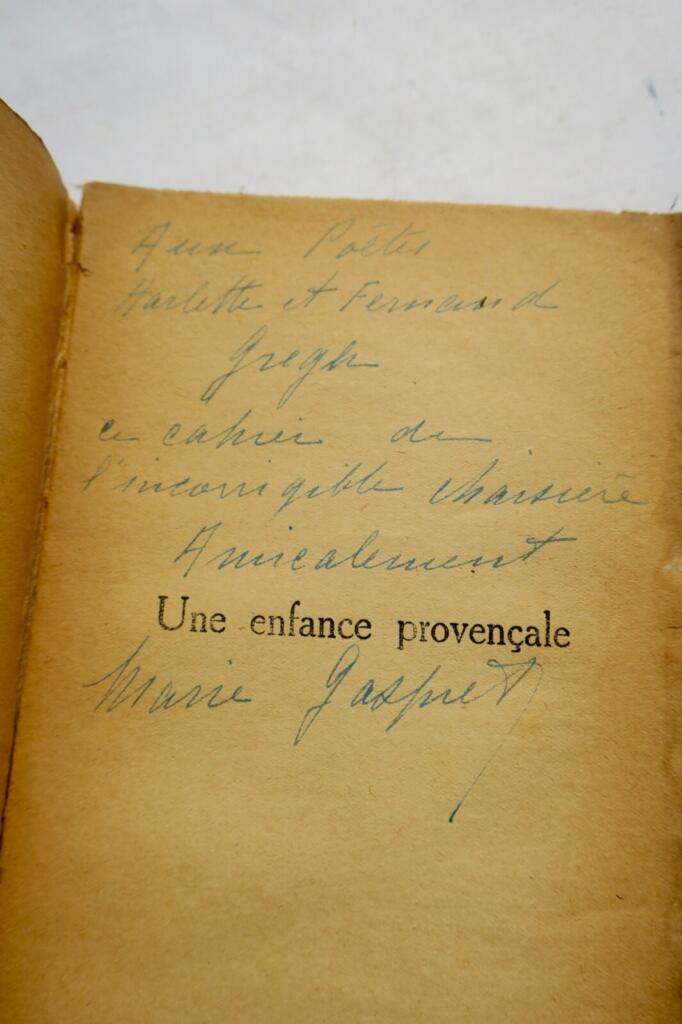 Aux Poètes
Harlette et Fernand
Gregh
ce cahier de
l'incorrigible
Amicalement
Une enfance provençale
Marie Gasquet